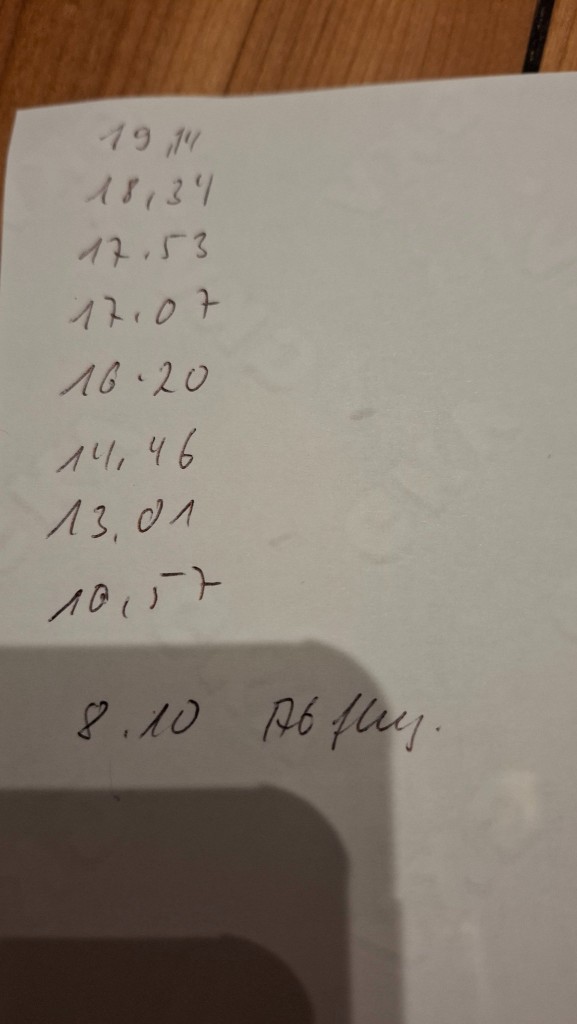 19,14
18,34
17.53
17.07
16.20
14,46
13,01
10,57
8.10 Abflug.